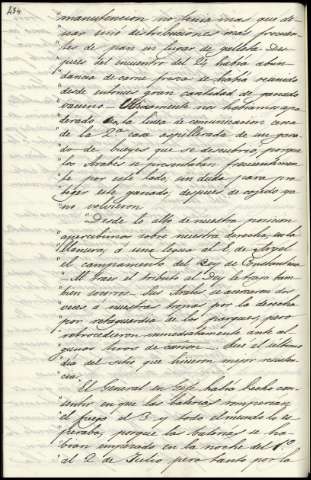 234
"manutencion no tenia mas que de-
"sear sinó distribuciones mas frecuen-
"tes de pan en lugar de galleta. Des-
"pues del encuentro del 24 habia abun-
"dancia de carne fresca se habia reunido
"desde entonces gran cantidad de ganado
"vacuno — Ultimamente nos habiamos apo-
"derado en la linea de comunicacion cerca
"de la 2ª casa aspillerada de un gana-
"do de bueyes que se descubrió porque
"los Arabes se presentaban frecuentemen-
"te por este lado, sin duda para pro-
"teger este ganado, despues de cogido ya
"no volvieron.
"Desde lo alto de nuestra posicion
"apercibimos sobre nuestra derecha, en la
"llanura, á una legua al E. de Argel
"el campamento del Bey de Constantina
"— Al traer el tributo al Dey le trajo tam-
"bien socorro — Sus Arabes se acercaron dos
"veces á nuestras tropas por la derecha
"por retaguardia de los parques, pero
"retrocedieron inmediatamente ante al-
"gunos tiros de cañon — Fué el ultimo
"dia del sitio que hicieron mejor resisten-
"cia.
"El General en Gefe habia hecho con-
"sentir en que las baterias romperian
"el fuego el 3 y todo el mundo lo es-
"peraba, porque las baterias se ha-
"bian empezado en la noche del 1º
"al 2 de Julio pero tanto por la